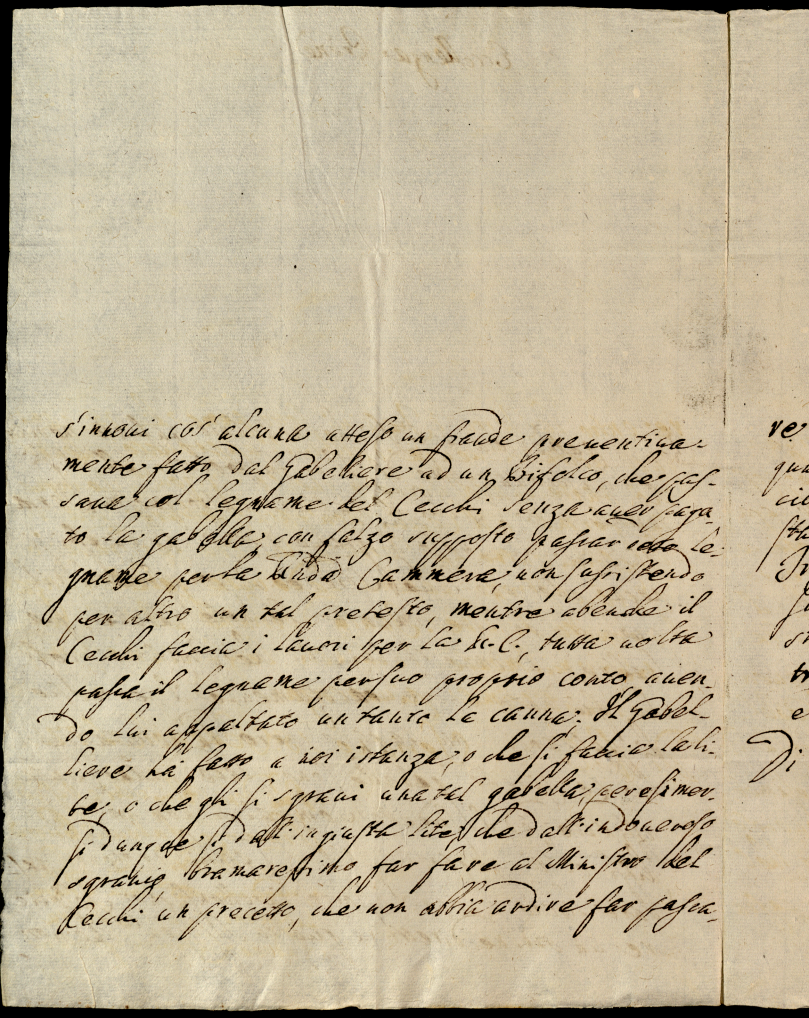 s'innovi cos' alcuna atteso un fraude preventiva=
mente fatto dal Gabelliere ad un Bifolco, che pas-
sava col legname del Cecchi senza aver paga-
to la gabella con falzo supposto passar le-
gname per la Cammera, non sussistendo
per altro un tal pretesto, mentre abenche il
Cecchi faccia i lavori per la R. C., tutta volta
passa il legname per suo proprio conto, aven-
do lui appaltato un tanto la canna. Il Gabel-
liere há fatto a noi istanza, o che si faccia la li-
te, o che gli si sgravi una tal gabella, per esimer-
si dunque sì dall'ingiusta lite, che dall'indoveroso
sgravio, bramaressimo far fare al Ministro del
Cecchi un precetto, che non abbia ardire far passa-
ve
e
Di